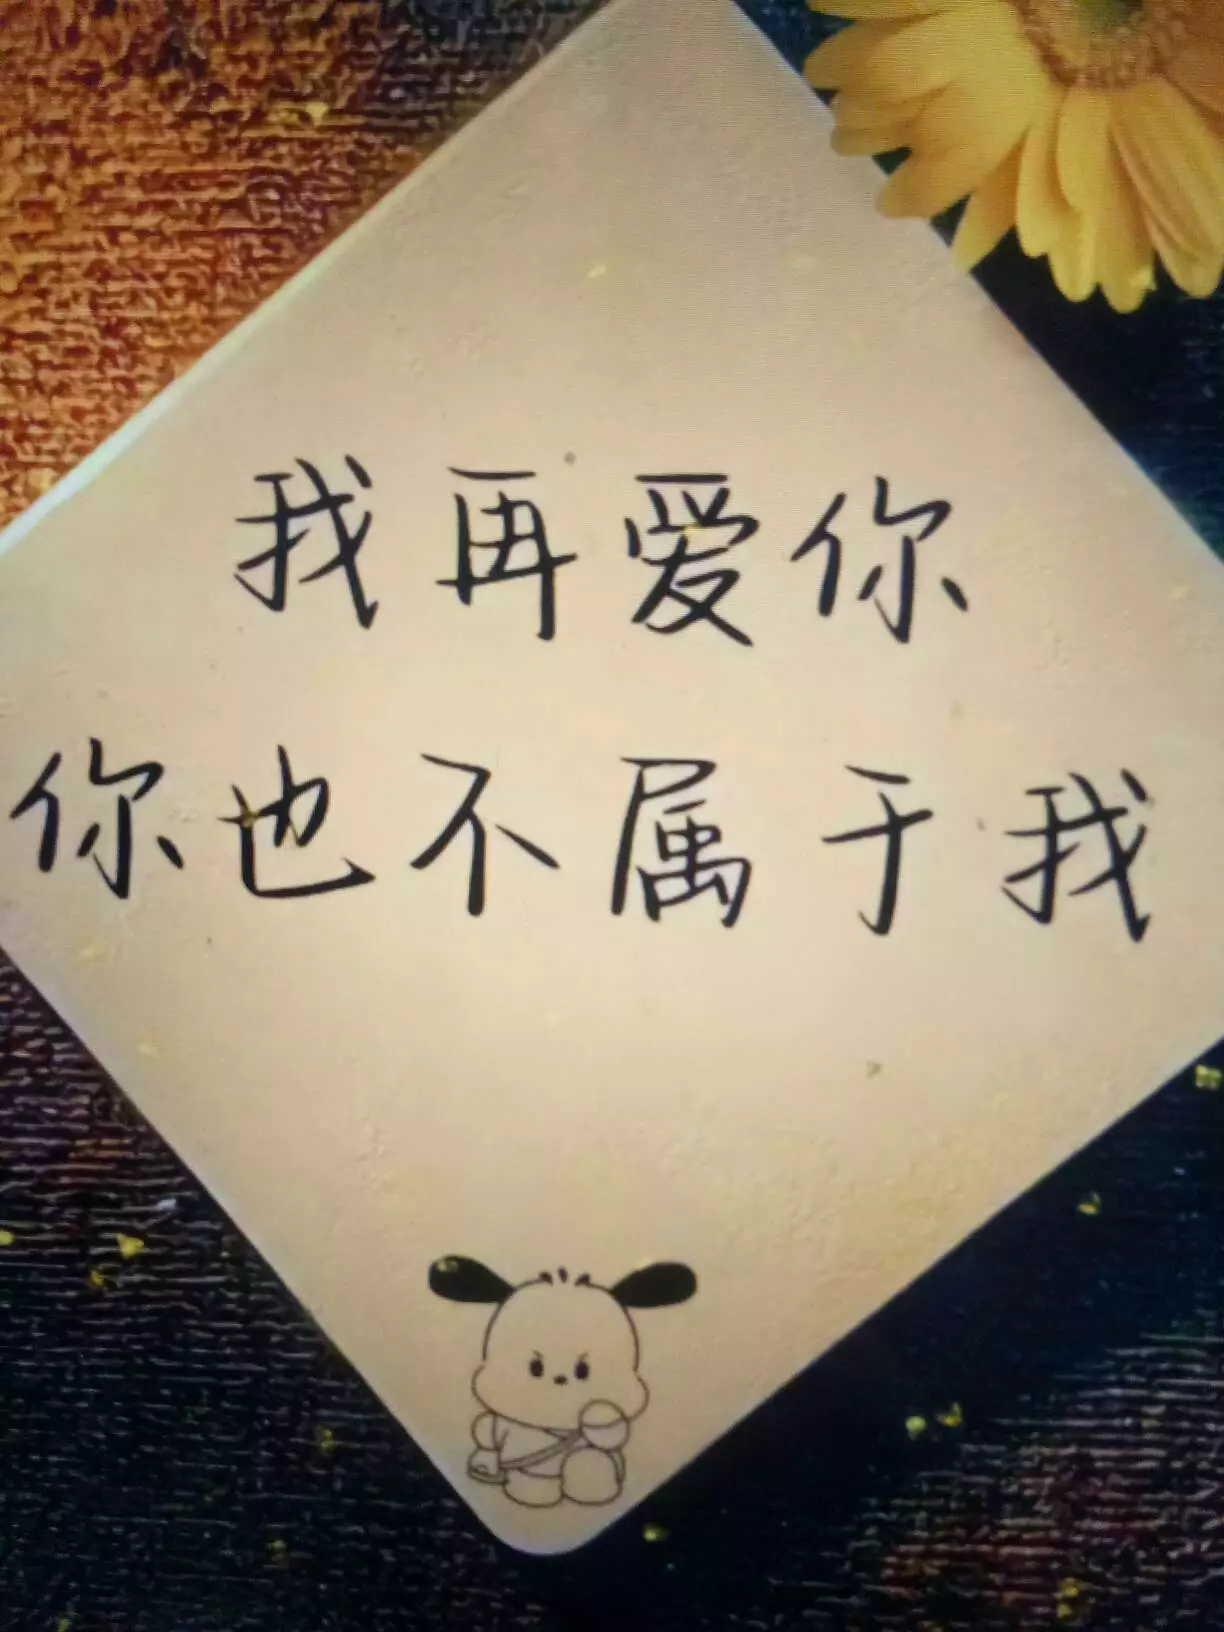 我再爱你
你也不属于我